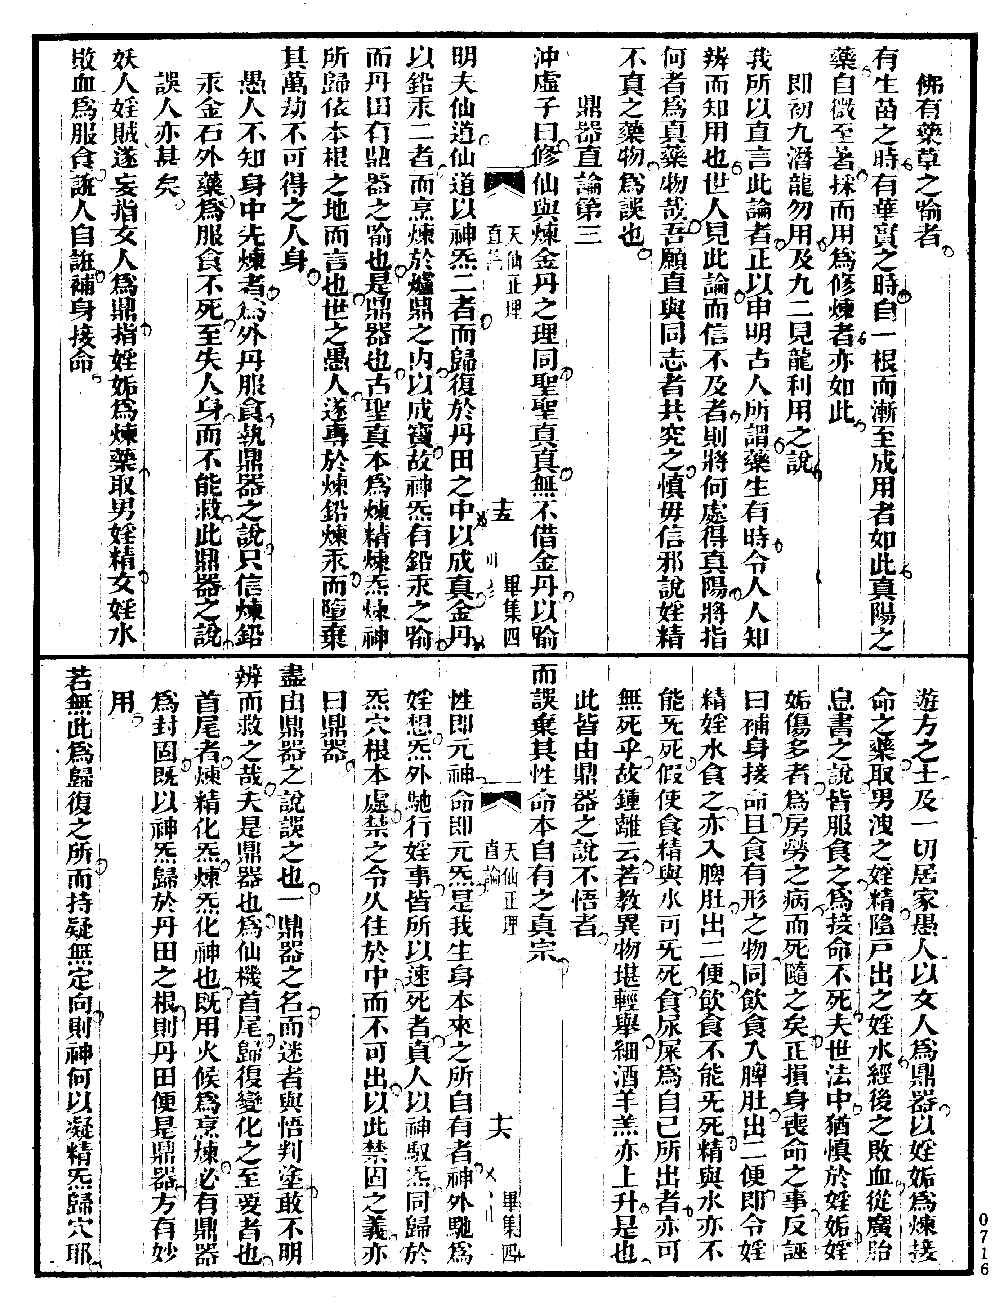 佛有藥草之喻者
有生苗之時有華實之時自一根而漸至成用者如此真陽之
藥自微至著採而用爲修煉者亦如此
即初九潛龍勿用及九二見龍利用之說
我所以直言此論者正以申明古人所謂藥生有時令人人知
辨而知用也世人見此論而信不及者則將何處得真陽將指
何者爲真藥物哉吾願直與同志者共究之愼毋信邪說婬精
不真之藥物爲誤也
鼎器直論第三
沖虛子曰修仙與煉金丹之理同聖聖真真無不借金丹以喻
天仙正理
直論
十五
畢集四
明夫仙道仙道以神炁二者而歸復於丹田之中以成真金丹
以鉛汞二者而烹煉於爐鼎之內以成寶故神炁有鉛汞之喻
而丹田有鼎器之喻也是鼎器也古聖真本爲煉精煉炁煉神
所歸依本根之地而言也世之愚人遂專於煉鉛煉汞而墮棄
其萬劫不可得之人身
愚人不知身中先煉者爲外丹服食執鼎器之說只信煉鉛
汞金石外藥爲服食不死至失人身而不能救此鼎器之說
誤人亦甚矣
妖人婬賊遂妄指女人爲鼎指婬姤爲煉藥取男婬精女婬水
敗血爲服食誑人自誑補身接命
遊方之士及一切居家愚人以女人爲鼎器以婬姤爲煉接
命之藥取男洩之婬精陰戸出之婬水經後之敗血從廣胎
息書之說皆服食之爲接命不死夫世法中猶愼於婬姤婬
姤傷多者爲房勞之病而死隨之矣正損身喪命之事反誣
曰補身接命且食有形之物同飲食入脾肚出二便即令婬
精婬水食之亦入脾肚出二便飲食不能旡死精與水亦不
能旡死假使食精與水可旡死食尿屎爲自己所出者亦可
無死乎故鍾離云若教異物堪輕舉細酒羊羔亦上升是也
此皆由鼎器之說不悟者
而誤棄其性命本自有之真宗
天仙正理
直論
十六
畢集四
性即元神命即元炁是我生身本來之所自有者神外馳爲
婬想炁外馳行婬事皆所以速死者真人以神馭炁同歸於
炁穴根本處禁之令久住於中而不可出以此禁固之義亦
曰鼎器
盡由鼎器之說誤之也一鼎器之名而迷者與悟判塗敢不明
辨而救之哉夫是鼎器也爲仙機首尾歸復變化之至要者也
首尾者煉精化炁煉炁化神也既用火候爲烹煉必有鼎器
爲封固既以神炁歸於丹田之根則丹田便是鼎器方有妙
用
若無此爲歸復之所而持疑無定向則神何以凝精炁歸穴耶
0716